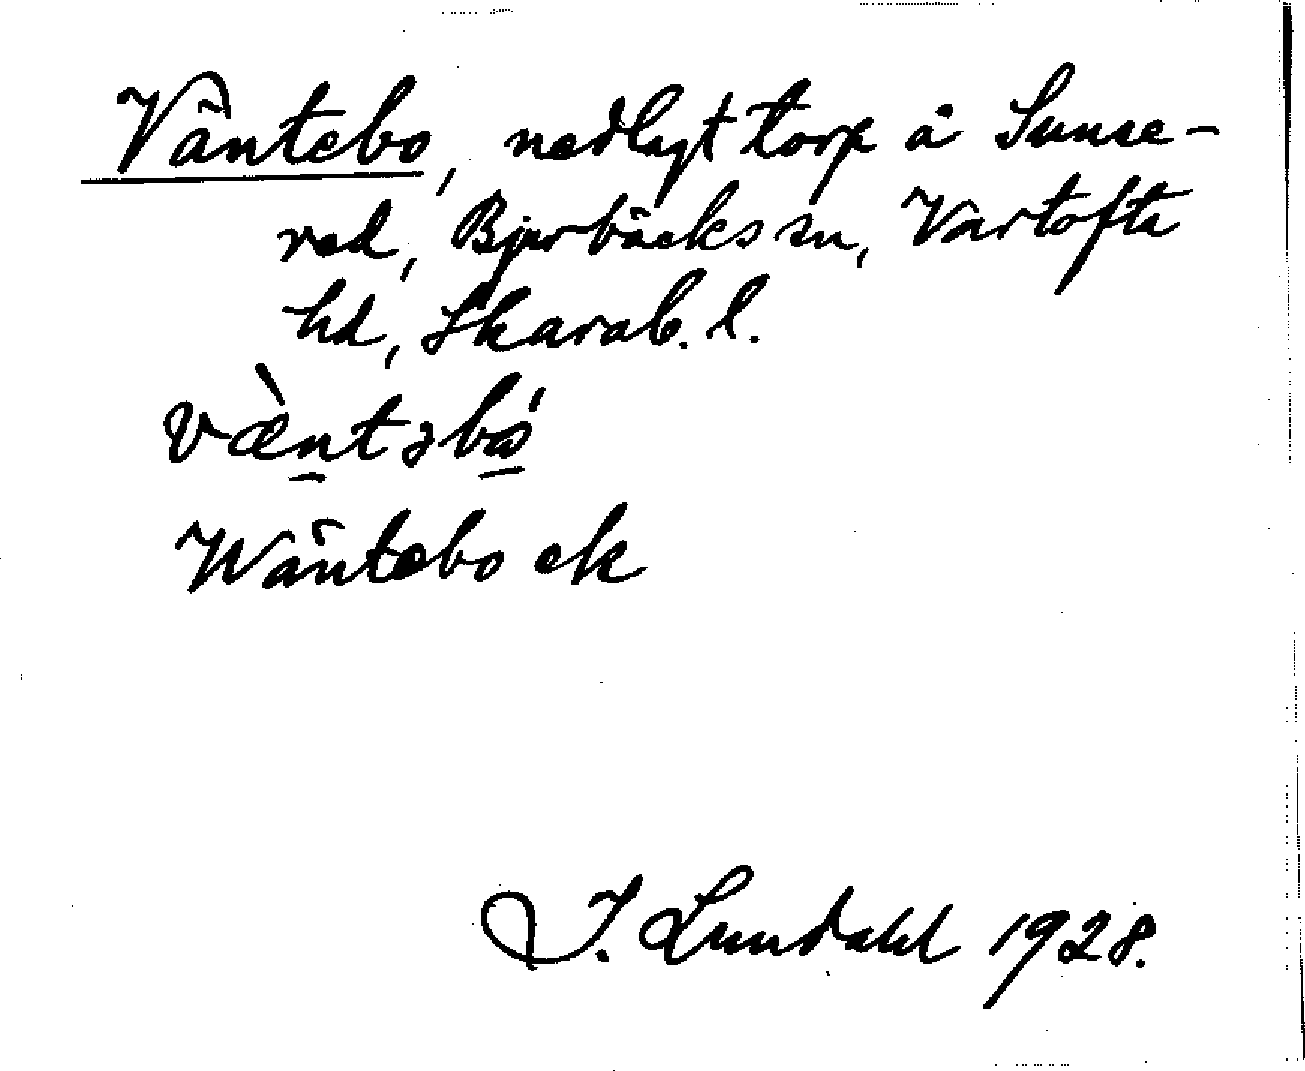 Väntebo, nedlagt torp å Sunne-
red, Bjurbäcks sn, Vartofta
hd, Skarab. l.
Väntebo ek
J. Lundahl 1928.